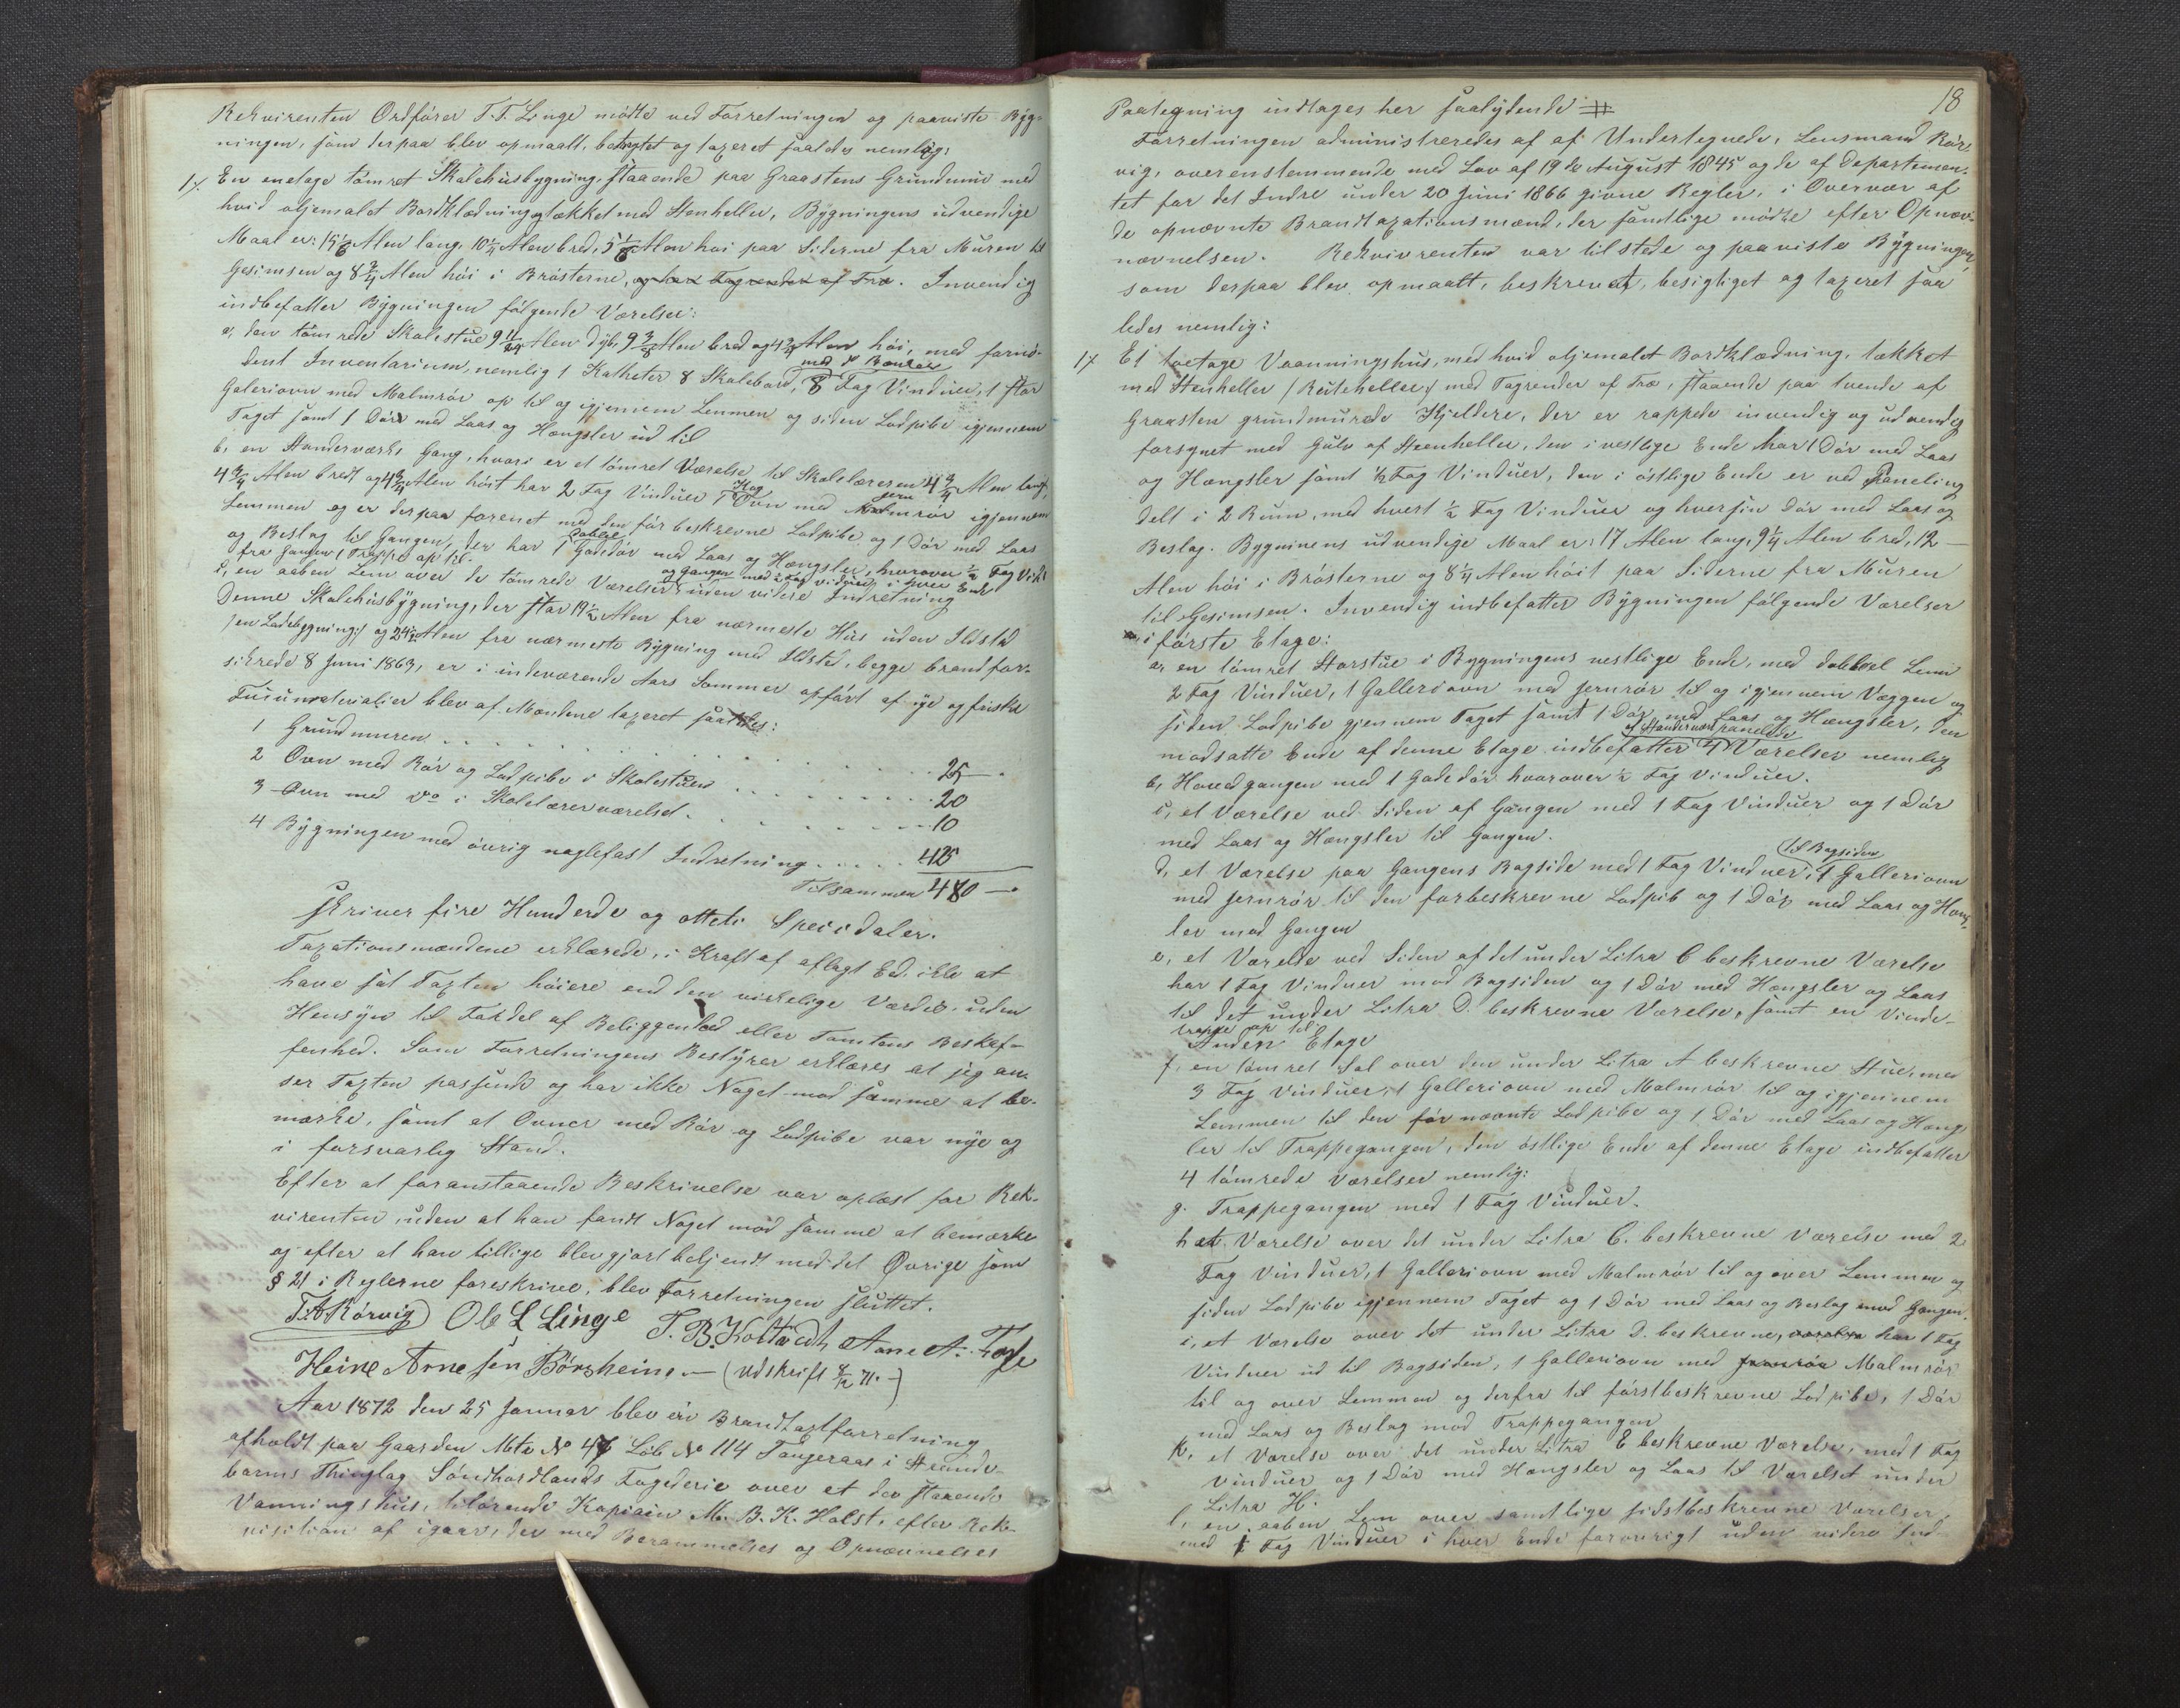 Rekvirenten Ordfører T. T. Linge mødte ved Forretningen og paaviste Byg-
ningen, som derpaa blev opmaalt, besigtet og taxeret saaledes nemlig:
1/. En enetage tømret Skolehusbygning, staaende paa Graastens Grundmur med
hvid oljemalet Bordklædning, tækket med Stenheller, Bygningens udvendige
Maal er: 15 Alen lang, 10¼ Alen bred, 5 Alen høi paa Siderne fra Muren til
Gesimsen og 8¾ Alen høi i Brøsterne, og har Tagrender af Træ. Invendig
indbefatter Bygningen følgende Værelser:
a, den tømrede Skolestue 9 11/24 Alen dyb, 9 3/8 Alen bred og 4¾ Alen høi, med fornø-
dent Inventarium, nemlig 1 Katheter 8 Skolebord, med 8 Bænker 8 Fag Vinduer, 1 stor
Galeriovn med Malmrør op til og igjennem Lemmen og siden Ladpibe igjennem
Taget samt 1 Dør med Laas og Hængsler ud til
b, en Standerværks Gang, hvori er et tømret Værelse til Skolelæreren 4¾ Alen langt,
4¾ Alen bredt og 4¾ Alen høit har 2 Fag Vinduer 1 Kog Ovn med Jernrør igjennem
Lemmen og er derpaa forenet med den førbeskrevne Ladpibe og 1 Dør med Laas
og Beslag til Gangen, der har 1 dobbel Gadedør med Laas og Hængsler, hvorover ½ Fag Vindu
fra Gangen 1 Trappe op til.
c, en aaben Lem over de tømrede Værelser og Gangen med ½ Fag Vinduer i hver Ende uden videre Indretning
Denne Skolehusbygning, der staar 19½ Alen fra nærmeste Hus uden Ildsted
/en Ladebygning/ og 24½ Alen fra nærmeste Bygning med Ildsted, begge brandfor-
sikrede 8 Juni 1863, er i indeværende Aars Sommer opført af nye og friske
Furumaterialier blev af Mændene taxeret saaledes:
1 Grundmuren . . . . . 25 —
2 Ovn med Rør og Ladpibe i Skolestuen . . . . . 20
3 Ovn med do i Skolelærerværelset . . . . . 10
4 Bygningen med øvrig naglefast Indretning . . . . . 425
Tilsammen 480 —
skriver fire Hunderde og otteti Speciedaler.
Taxationsmændene erklærede, i Kraft af aflagt Ed, ikke at
have sat Taxten høiere end den virkelige Værdie, uden
Hensyn til Fordel af Beliggenhed eller Tomtens Beskaf-
fenhed. Som Forretningens Bestyrer erklæres at jeg an-
ser Taxten passende og har ikke Noget mod samme at be-
mærke, samt at Ovner med Rør og Ladpibe var nye og
i forsvarlig Stand.
Efter at foranstaaende Beskrivelse var oplæst for Rek-
virenten, uden at han fandt Noget mod samme at bemærke
og efter at han tillige blev gjort bekjendt med det Øvrige som
§ 21 i Reglerne foreskriver, blev Forretningen sluttet.
T. A. Rørvig Ole L Linge T. B. Kolltvedt Arne A.
Heine Arnesen Børsheim. — (Udskrift 8/12 71. —)
Aar 1872 den 25 Januar blev en Brandtaxtforretning
afholdt paa Gaarden Mtr No 47 Løb No 114 Tangeraas i Strande-
barms Thinglag Søndhordlands Fogederie over et der staaende
Vaaningshus, tilhørende Kaptain M. B. K. Holst, efter Rek-
visition af igaar, der med Berammelses og Opnævnelses
18
Paategning indtages her saalydende
Forretningen administreredes af af Undertegnede, Lensmand Rør-
vig, overensstemmende med Lov af 19de August 1845 og de af Departemen-
tet for det Indre under 20 Juni 1866 givne Regler, i Overvær af
de opnævnte Brandtaxationsmænd, der samtlige mødte efter Opnæv-
nævnelsen. Rekvirenten var tilstede og paaviste Bygningen,
som derpaa blev opmaalt, beskrevet, besigtiget og taxeret saa
ledes nemlig:
1/. Et toetage Vaanningshus, med hvid oljemalet Bordklædning, tækket
med Stenheller /Ruteheller/ med Tagrender af Træ, staaende paa tvende af
Graasten grundmurede Kjeldere, der er rappede invendig og udvendig
forsynet med Gulv af Steenheller, den i vestlige Ende har 1 Dør med Laas
og Hængsler samt ½ Fag Vinduer, den i østlige Ende er ved Paneling
delt i 2 Rum, med hvert ½ Fag Vinduer og hversin Dør med Laas og
Beslag. Bygningens udvendige Maal er: 17 Alen lang, 9¼ Alen bred, 12 —
Alen høi i Brøsterne og 8¼ Alen høit paa Siderne fra Muren
til Gesimsen. Invendig indbefatter Bygningen følgende Værelser
i første Etage:
a, en tømret Storstue i Bygningens vestlige Ende, med dobbel Lem
2 Fag Vinduer, 1 Galleriovn med Jernrør til og igjennem Væggen og
siden Ladpibe gjennem Taget samt 1 Dør med Laas og Hængsler, den
modsatte Ende af denne Etage indbefatter 4 Værelser nemlig
b, Hovedgangen med 1 Gadedør hvorover ½ Fag Vinduer.
c, et Værelse ved Siden af Gangen med 1 Fag Vinduer og 1 Dør
med Laas og Hængsler til Gangen.
d, et Værelse paa Gangens Bagside med 1 Fag Vinduer til Bagsiden, 1 Galleriovn
med Jernrør til den forbeskrevne Ladpib og 1 Dør med Laas og Hæng-
ler mod Gangen
e, et Værelse ved Siden af det under Litra C beskrevne Værelse
har 1 Fag Vinduer mod Bagsiden og 1 Dør med Hængsler og Laas
til det under Litra D. beskrevne Værelse, samt en Vinde-
trappe op til
Anden Etage
f, en tømret Sal over den under Litra A beskrevne Stue, med
3 Fag Vinduer, 1 Galleriovn med Malmrør til og igjennem
Lemmen til den før nævnte Ladpibe og 1 Dør med Laas og Hæng
ler til Trappegangen, den østlige Ende af denne Etage indbefatter
4 tømrede Værelser nemlig:
g. Trappegangen med 1 Fag Vinduer.
h et Værelse over det under Litra C. beskrevne Værelse med 2
Fag Vinduer, 1 Galleriovn med Malmrør til og over Lemmen og
siden Ladpibe igjennem Taget og 1 Dør med Laas og Beslag mod Gangen.
i, et Værelse over det under Litra D. beskrevne, værelse har 1 Fag
Vinduer ud til Bagsiden, 1 Galleriovn med Jernrør Malmrør
til og over Lemmen og derfra til førstbeskrevne Ladpibe, 1 Dør
med Laas og Beslag mod Trappegangen
k, et Værelse over det under Litra E beskrevne Værelse, med 1 Fag
Vinduer og 1 Dør med Hængsler og Laas til Værelset under
Litra H.
l, en aaben Lem over samtlige sidstbeskrevne Værelser,
med Fag Vinduer i hver Ende forøvrigt uden videre Ind-